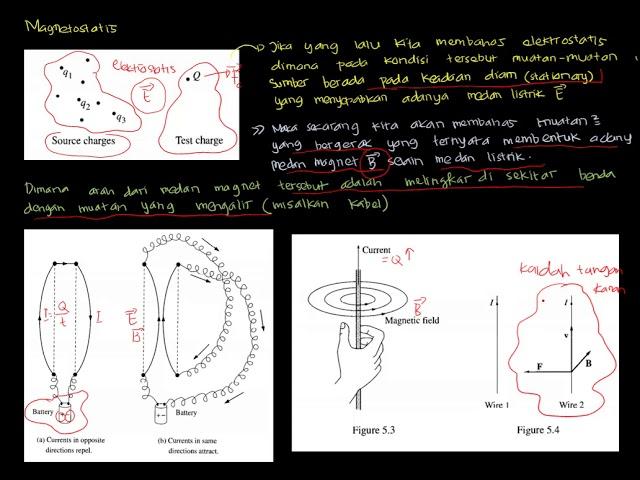 Magnetostatis
elektrostatis
q1
q2
q3
E
Q
F
Source charges
Test charge
Jika yang lalu kita membahas elektrostatis
dimana pada kondisi tersebut muatan-muatan
sumber berada pada keadaan diam (stationary)
yang menyebabkan adanya medan listrik E
Maka sekarang kita akan membahas muatan2
yang bergerak yang ternyata membentuk adanya
medan magnet B selain medan listrik.
Dimana arah dari medan magnet tersebut adalah melingkar di sekitar benda
dengan muatan yang mengalir (misalkan kabel)
I = Q/t
I
E
B
Battery
+ -
Battery
+ -
(a) Currents in opposite
directions repel.
(b) Currents in same
directions attract.
Current
= Q ↑
B
Magnetic field
Figure 5.3
kaidah tangan
kanan
I
I
v
F
B
Wire 1
Wire 2
Figure 5.4